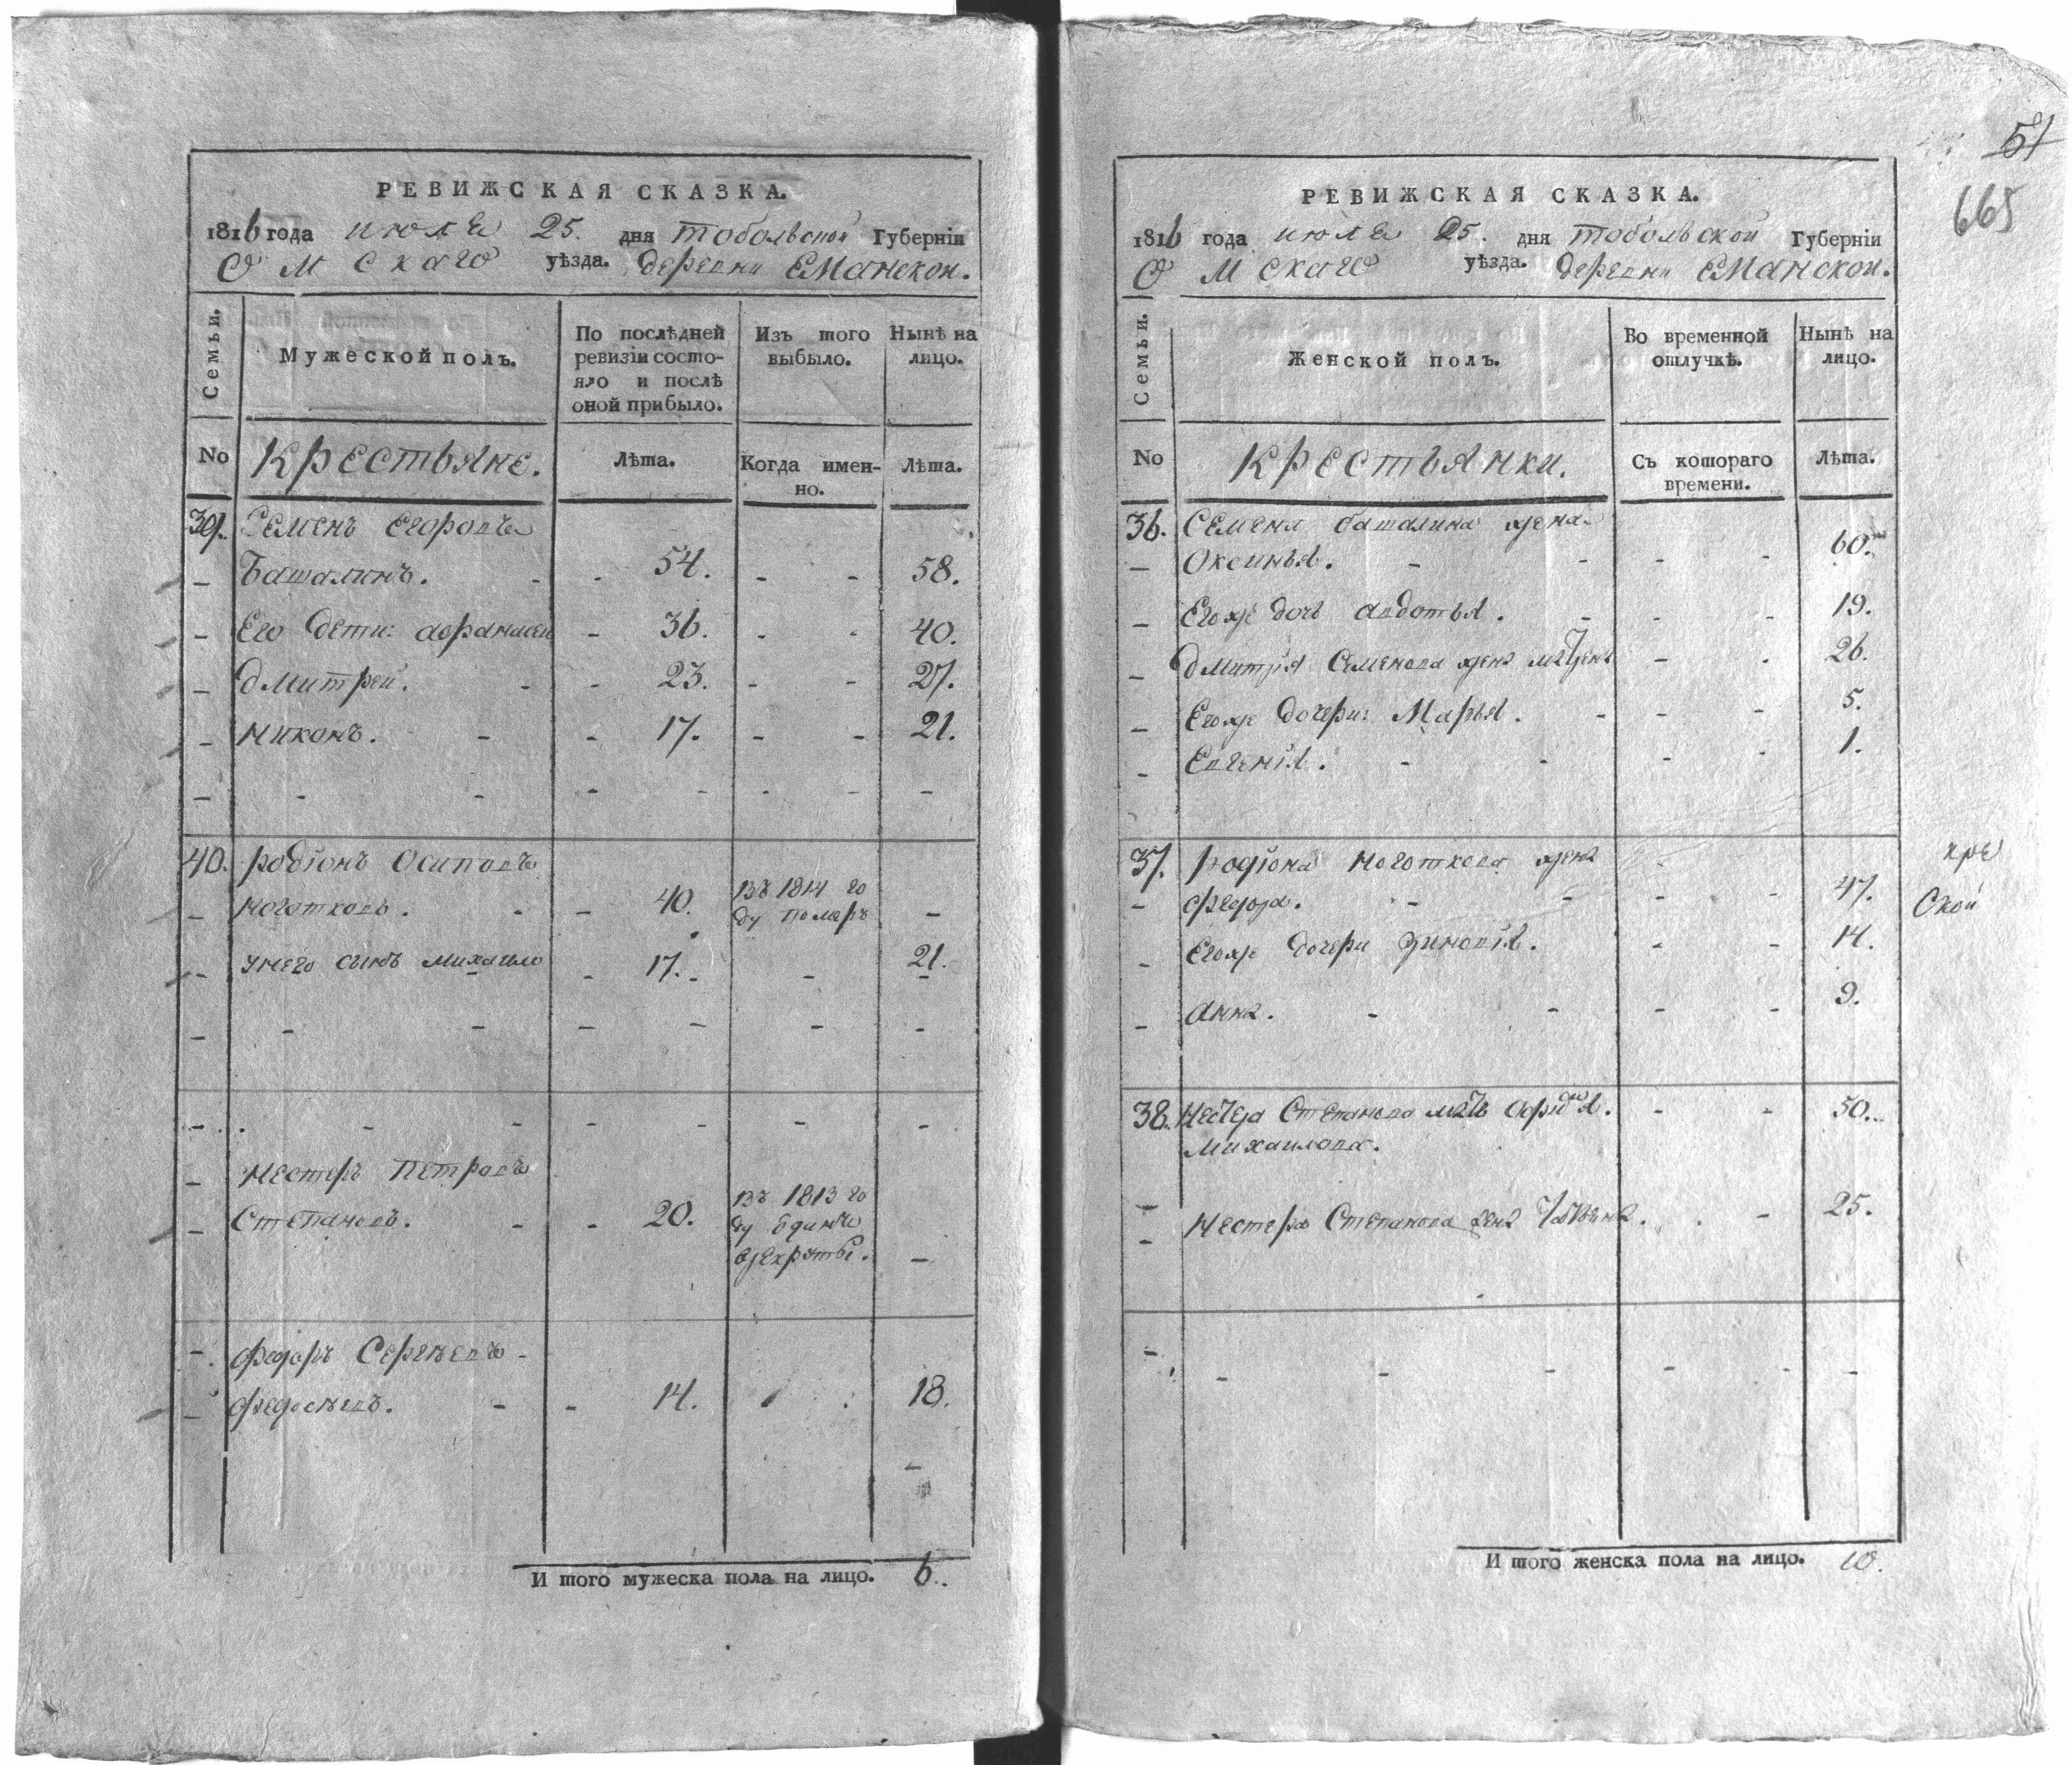 РЕВИЖСКАЯ СКАЗКА.
1816 года июля 25. дня тобольской Губерніи
Омскаго уѣзда. деревни Еманской.
Семьи.
Мужеской полъ.
По послѣдней ревизіи состояло и послѣ оной прибыло.
Изъ того выбыло.
Нынѣ на лицо.
No
Крестьяне.
Лѣта.
Когда именно.
Лѣта.
39. Семенъ Егоровъ
Башалинъ. 54. 58.
Его дети: афанасеи 36. 40.
Дмитреи. 23. 27.
Никонъ. 17. 21.
40. Родіонъ Осиповъ
Ноготковъ. 40. въ 1814 го
ду померъ
унего сынъ михаило 17. 21.
Нестеръ Петровъ
Степановъ. 20. въ 1813 го
ду
врекруты.
Федоръ Сергѣевъ
Федосѣевъ. 14. 18.
И того мужеска пола на лицо. 6.
51
665
РЕВИЖСКАЯ СКАЗКА.
1816 года июля 25. дня тобольской Губерніи
Омскаго уѣзда. деревни Еманской.
Семьи.
Женской полъ.
Во временной отлучкѣ.
Нынѣ на лицо.
No
Крестьянки.
Съ котораго времени.
Лѣта.
36. Семена башалина жена
Оксинья. 60.
Егоже дочь авдотья. 19.
Дмитрія Семенова жена 26.
Егоже дочери: Марья. 5.
Евгенія. 1.
37. Родіона Ноготкова жена
47.
Егоже дочери Зиновія. 14.
анна. 9.
кре
ской
38. Степанова мать 50.
михаилова.
Нестера Степанова жена 25.
И того женска пола на лицо. 10.